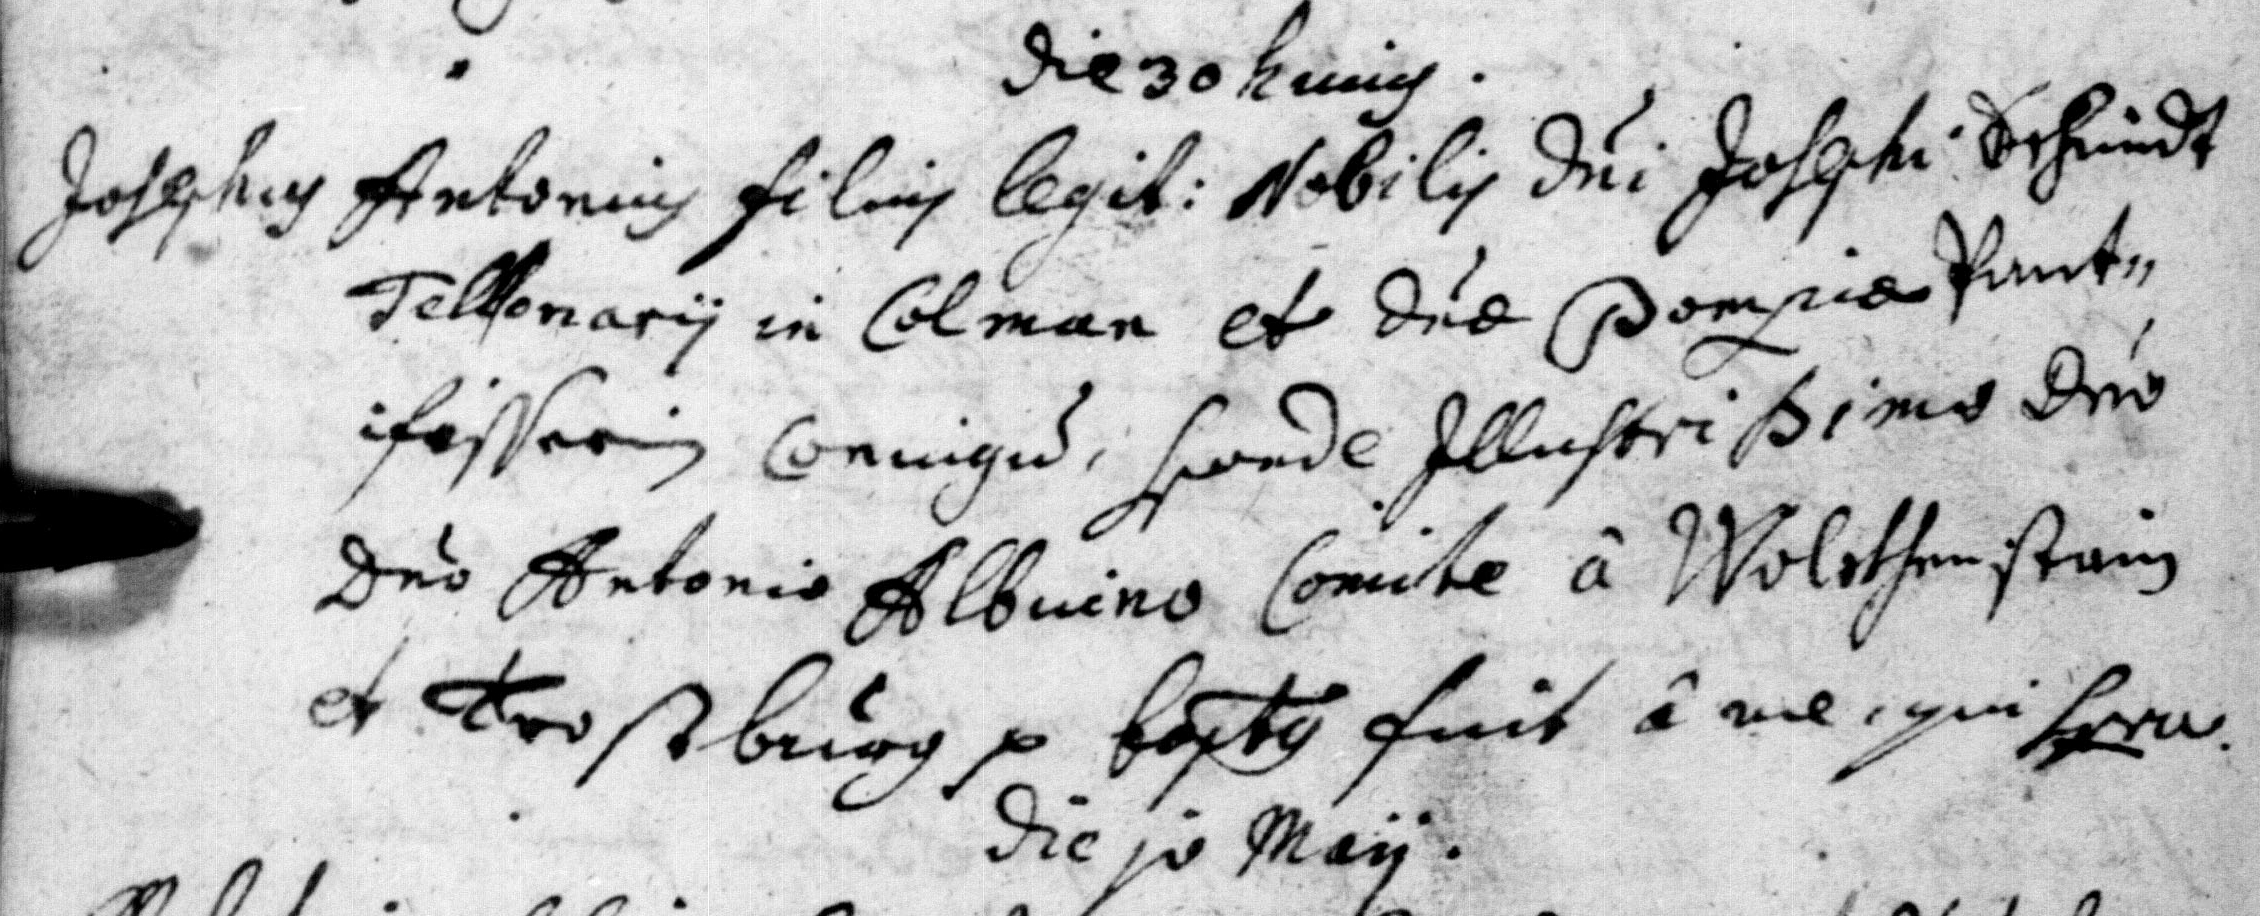 die 30 huius.
Josephus Antonius filius legit: Nobilis Dni Josephi Schmidt
Tellonarij in Colman et Dnae Pompiae Pant„
ifösserin Coniugu, levande Illustrißimo Dno
Dno Antonio Albuino Comite â Wolckhenstain
et Trostburg p bapts fuit â me, qui supra.
Die jo Maij.